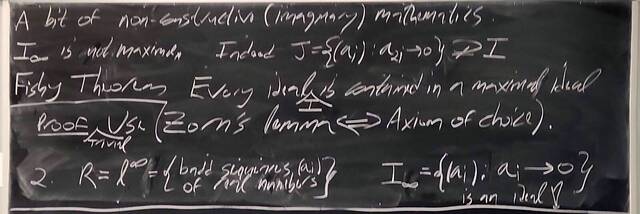 A bit of non-constructive (imaginary) mathematics.
I∞ is not maximal, Indeed J={(ai): a2i→0} ⊋ I
Fishy Theorem Every ideal I is contained in a maximal ideal
Proof Trivial Use (Zorn's lemma ⟺ Axium of choice).
2. R = l^∞ = {bndd sequences (ai) of real numbers} I∞ = {(ai): ai → 0}
is an ideal